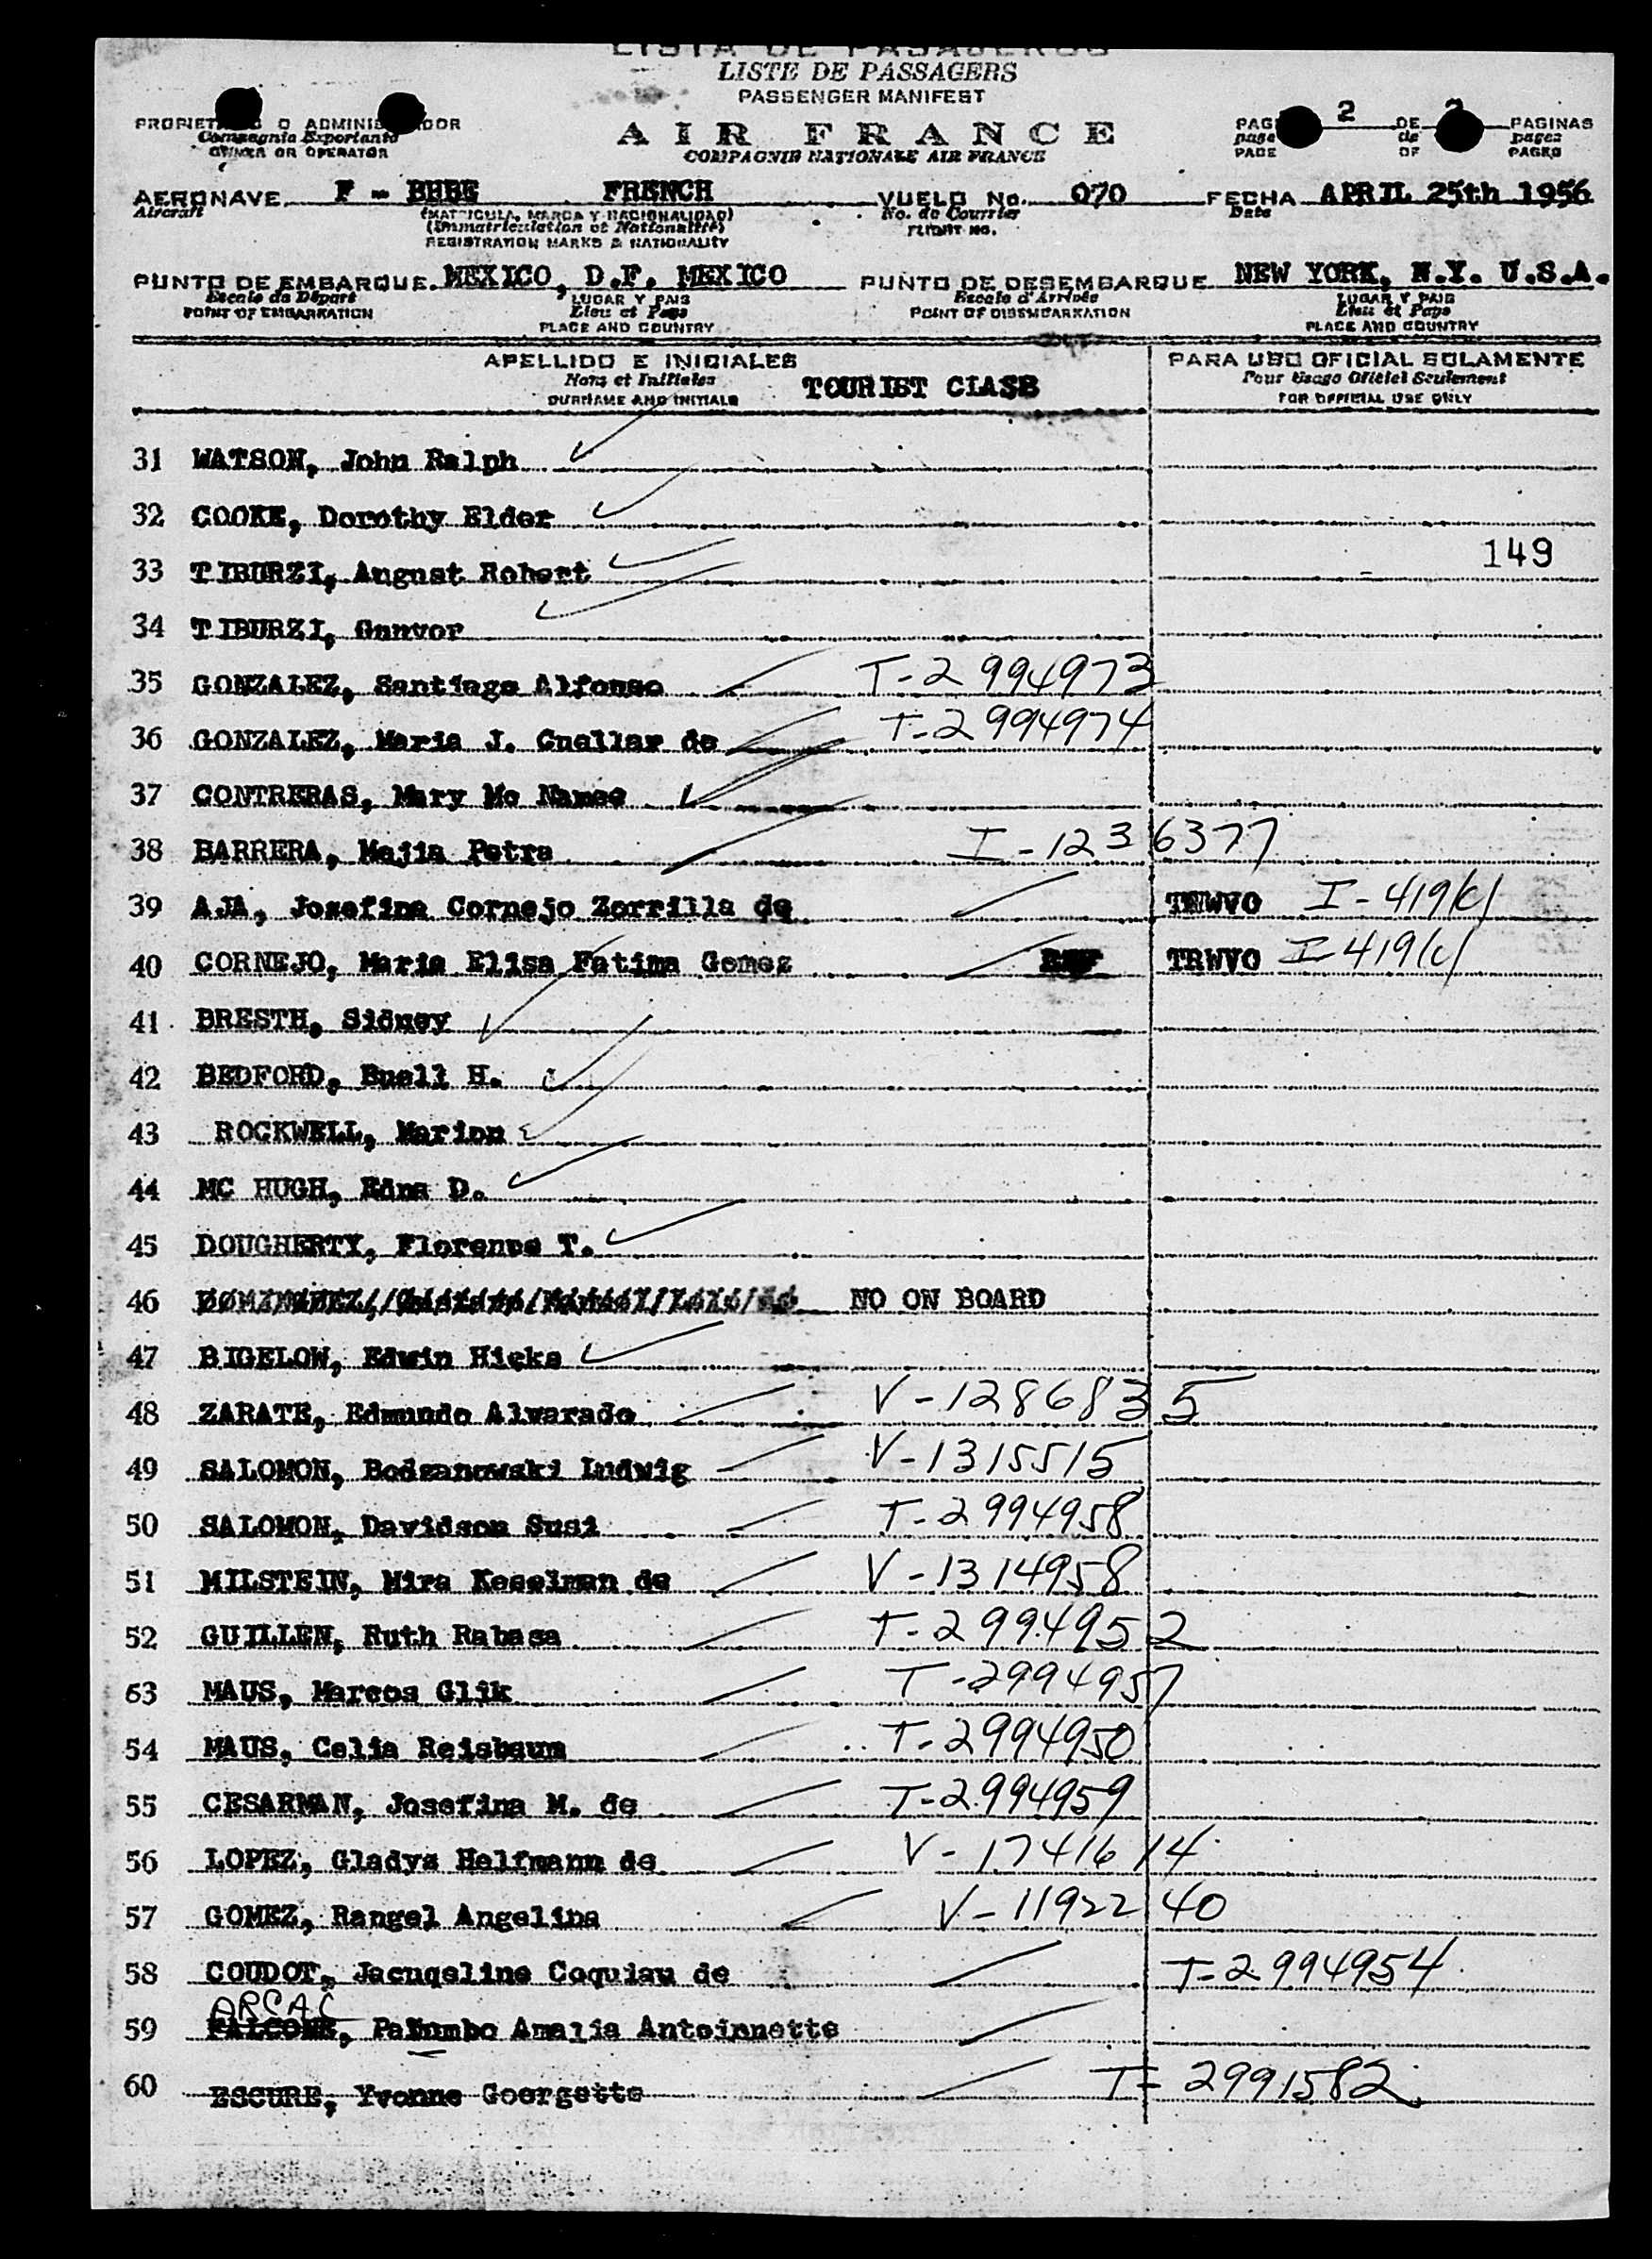 LISTA DE PASAJEROS
LISTE DE PASSAGERS
PASSENGER MANIFEST
AIR FRANCE
COMPAGNIE NATIONALE AIR FRANCE
O ADMINIS DOR
Compagnie Exportante
OWNER OR OPERATOR
PAG 2 DE PAGINAS
page de pages
PAGE OF PAGES
AERONAVE F - BHBE FRENCH VUELO No. 070 FECHA APRIL 25th 1956
Aircraft (MATRICULA, MARCA Y NACIONALIDAD) No. de Courrier Date
(Immatriculation et Nationalité) FLIGHT NO.
REGISTRATION MARKS & NATIONALITY
PUNTO DE EMBARQUE MEXICO, D.F. MEXICO PUNTO DE DESEMBARQUE NEW YORK, N.Y. U.S.A.
Escale de Départ LUGAR Y PAIS Escale d'Arrivée LUGAR Y PAIS
POINT OF EMBARKATION Lieu et Pays POINT OF DISEMBARKATION Lieu et Pays
PLACE AND COUNTRY PLACE AND COUNTRY
APELLIDO E INICIALES PARA USO OFICIAL SOLAMENTE
Nom et Initiales TOURIST CLASS Pour Usage Officiel Seulement
SURNAME AND INITIALS FOR OFFICIAL USE ONLY
31 WATSON, John Ralph
32 COOKE, Dorothy Elder
149
33 TIBURZI, August Robert
34 TIBURZI, Gunvor
35 GONZALEZ, Santiago Alfonso T-2994973
36 GONZALEZ, Maria J. Cuellar de T-2994974
37 CONTRERAS, Mary Mc Namee
38 BARRERA, Mejia Petra I-1236377
39 AJA, Josefina Cornejo Zorrilla de TRWVO I-419(c)
40 CORNEJO, Maria Elisa Fatima Gomez TRWVO I-419(c)
41 BRESTH, Sidney
42 BEDFORD, Buell H.
43 ROCKWELL, Marion
44 MC HUGH, Edna D.
45 DOUGHERTY, Florence T.
46 NO ON BOARD
47 BIGELOW, Edwin Hicks
48 ZARATE, Edmundo Alvarado V-1286835
49 SALOMON, Bodzanowski Ludwig V-1315515
50 SALOMON, Davidson Susi T-2994958
51 MILSTEIN, Mira Keselman de V-1314958
52 GUILLEN, Ruth Rabasa T-2994952
53 MAUS, Marcos Glik T-2994957
54 MAUS, Celia Reisbaum T-2994950
55 CESARMAN, Josefina M. de T-2994959
56 LOPEZ, Gladys Helfmann de V-1741614
57 GOMEZ, Rangel Angelina V-1192240
58 COUDOT, Jacuqeline Coquiau de T-2994954
ARCAC
59 FALCONE, Palumbo Amalia Antoinnette
60 ESCURE, Yvonne Goergette T-2991582